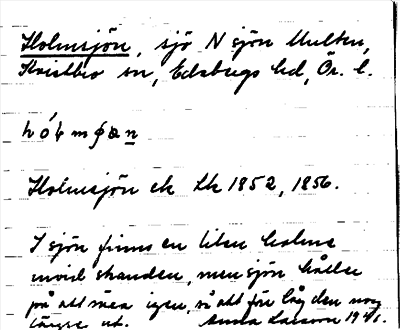 Holmsjön, sjö N sjön Multen,
Kvistbro sn, Edsbergs hd, Ör. l.
hó4mʃøn
Holmsjön ek Lk 1852, 1856.
I sjön finns en liten holme
invid stranden, men sjön håller
på att växa igen, så att förr låg den nog
längre ut. Anna Larsson 1941.